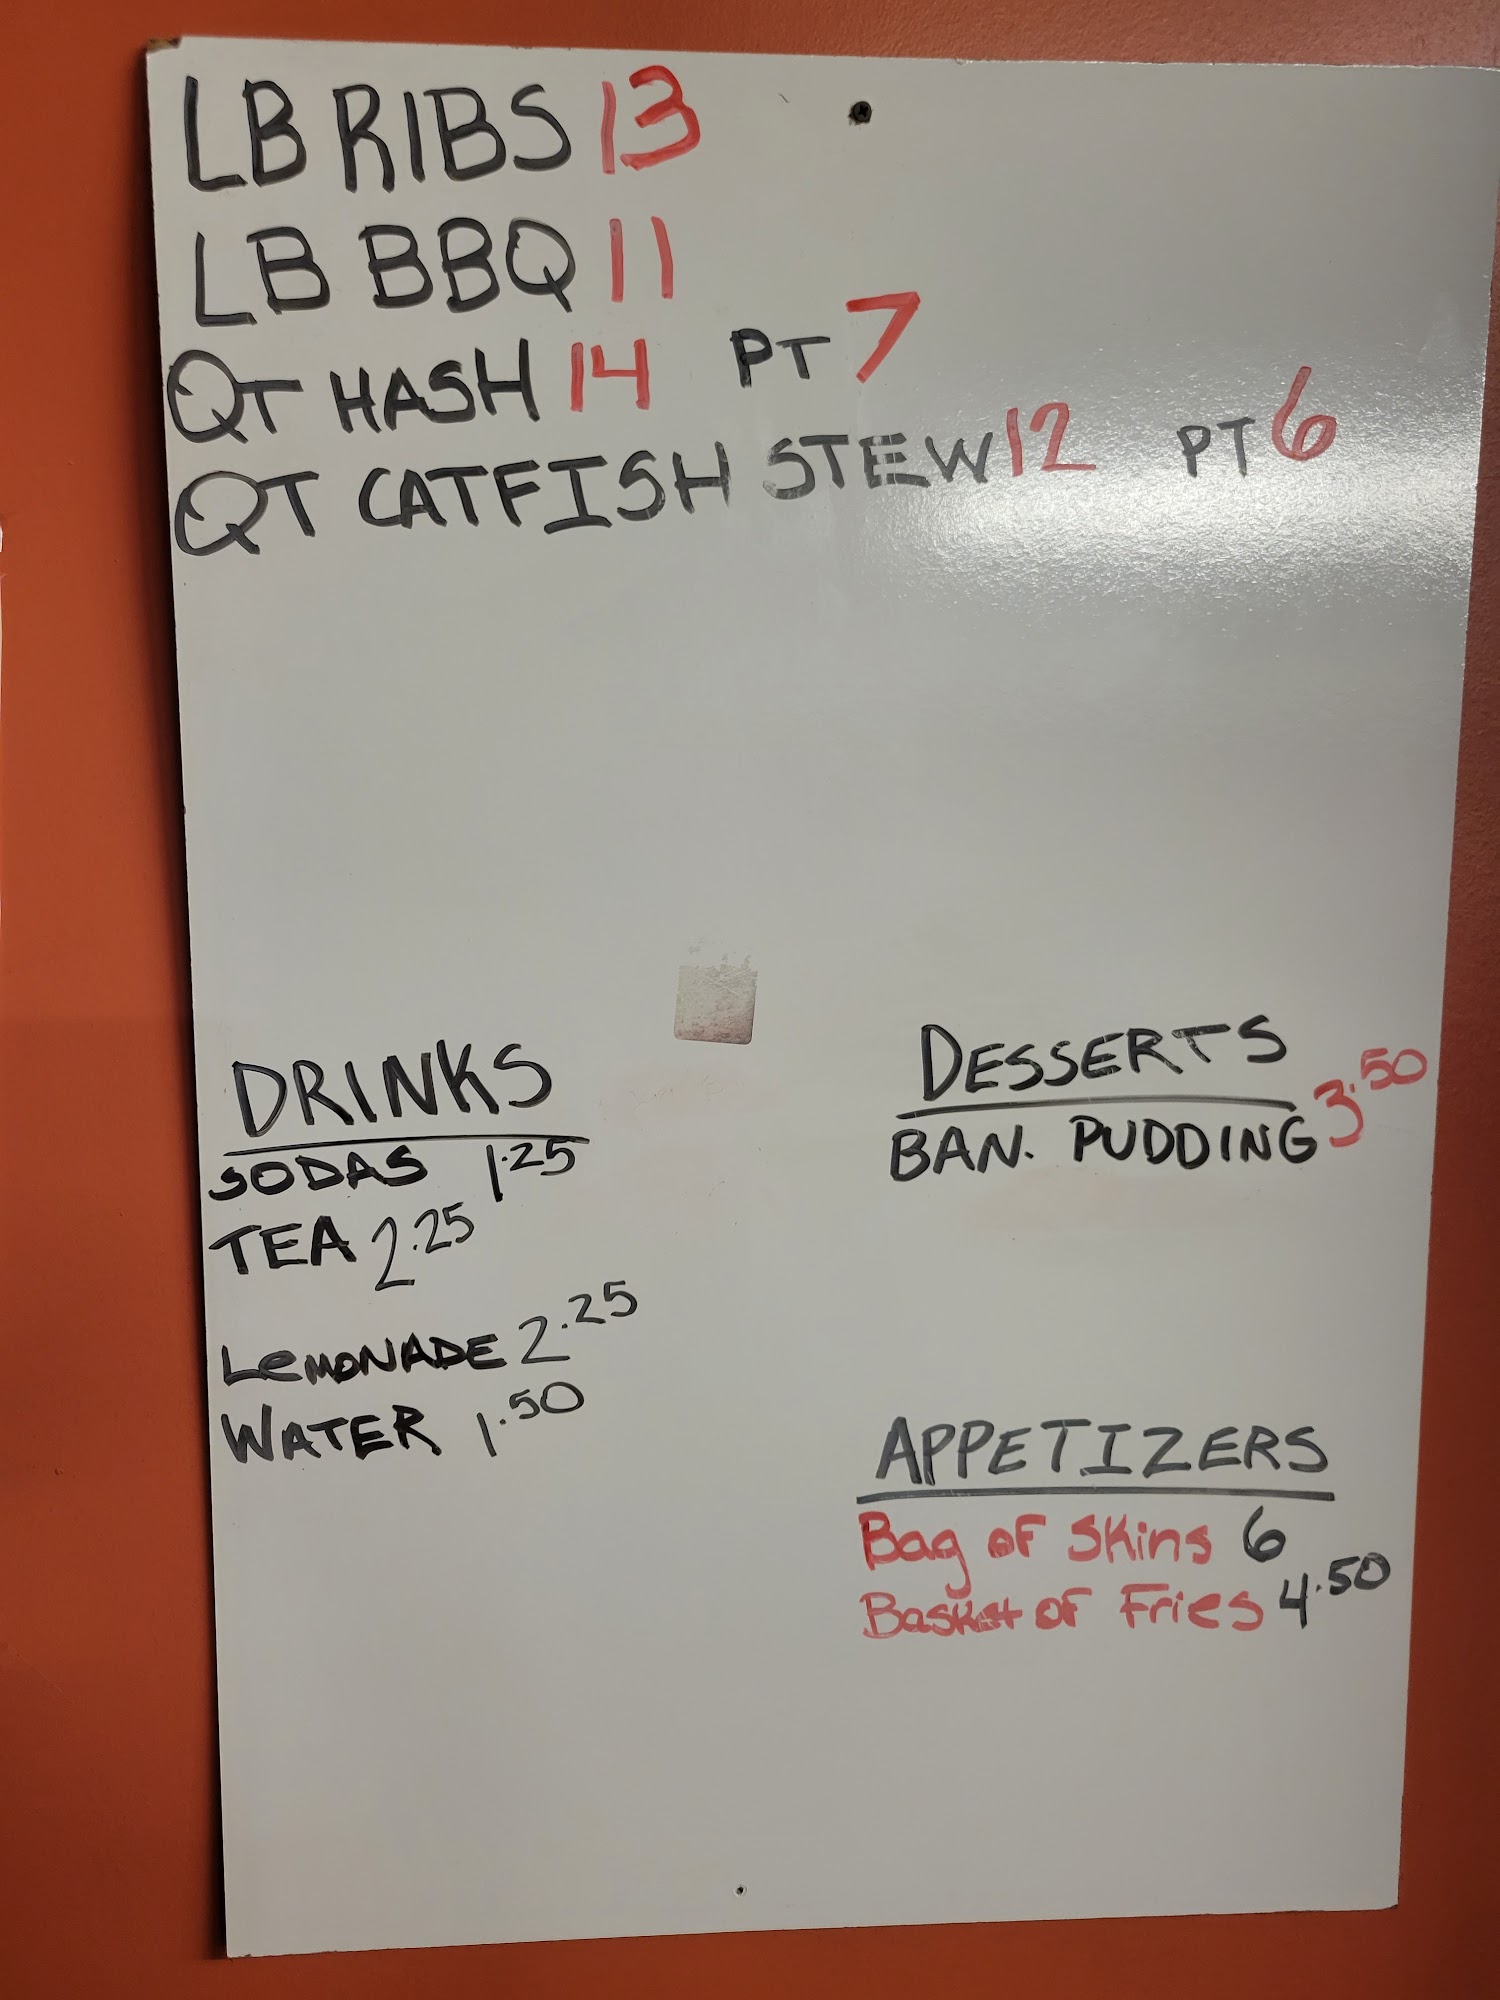 LB RIBS 13
LB BBQ 11
QT HASH 14 PT 7
QT CATFISH STEW 12 PT 6
DRINKS
SODAS 1.25
TEA 2.25
LEMONADE 2.25
WATER 1.50
DESSERTS
BAN. PUDDING 3.50
APPETIZERS
Bag of Skins 6
Basket of Fries 4.50